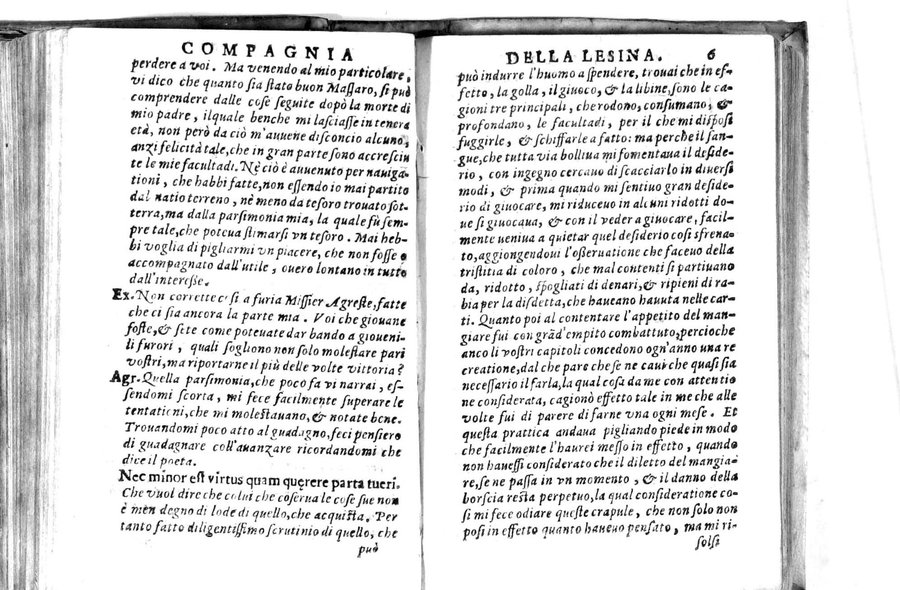 COMPAGNIA
perdere a voi. Ma venendo al mio particolare,
vi dico che quanto sia stato buon Massaro, si può
comprendere dalle cose seguite dopò la morte di
mio padre, ilquale benche mi lasciasse in tenera
età, non però da ciò m'auuene disconcio alcuno,
anzi felicità tale, che in gran parte sono accresciu
te le mie facultadi. Nè ciò è auuenuto per nauiga-
tioni, che habbi fatte, non essendo io mai partito
dal natio terreno, nè meno da tesoro trouato sot-
terra, ma dalla parsimonia mia, la quale fù sem-
pre tale, che poteua stimarsi vn tesoro. Mai heb-
bi voglia di pigliarmi vn piacere, che non fosse o
accompagnato dall'utile, ouero lontano in tutto
dall'interesse.
Ex. Non corrette cosi a furia Missier Agreste, fatte
che ci sia ancora la parte mia. Voi che giouane
foste, & sete come poteuate dar bando a gioueni-
li furori, quali sogliono non solo molestare pari
vostri, ma riportarne il più delle volte vittoria?
Agr. Quella parsimonia, che poco fa vi narrai, es-
sendomi scorta, mi fece facilmente superare le
tentationi, che mi molestauano, & notate bene.
Trouandomi poco atto al guadagno, feci pensiero
di guadagnare coll'auanzare ricordandomi che
dice il poeta.
Nec minor est virtus quam querere parta tueri.
Che vuol dire che colui che coserua le cose sue non
è men degno di lode di quello, che acquista. Per
tanto fatto diligentissimo scrutinio di quello, che
può
DELLA LESINA. 6
può indurre l'huomo a spendere, trouai che in ef-
fetto, la golla, il giuoco, & la libine, sono le ca-
gioni tre principali, che rodono, consumano, &
profondano, le facultadi, per il che mi disposi
fuggirle, & schiffarle a fatto: ma perche il san-
gue, che tutta via bolliua mi fomentaua il deside-
rio, con ingegno cercauo di scacciarlo in diuersi
modi, & prima quando mi sentiuo gran deside-
rio di giuocare, mi riduceuo in alcuni ridotti do-
ue si giuocaua, & con il veder a giuocare, facil-
mente ueniua a quietar quel desiderio cosi sfrena-
to, aggiongendoui l'osseruatione che faceuo della
tristitia di coloro, che mal contenti si partiuano
da, ridotto, spogliati di denari, & ripieni di ra-
bia per la disdetta, che haueano hauuta nelle car-
ti. Quanto poi al contentare l'appetito del man-
giare fui con grãd'empito combattuto, percioche
anco li vostri capitoli concedono ogn'anno una re
creatione, dal che pare che se ne caui che quasi sia
necessario il farla, la qual cosa da me con attentio
ne considerata, cagionò effetto tale in me che alle
volte fui di parere di farne vna ogni mese. Et
questa prattica andaua pigliando piede in modo
che facilmente l'haurei messo in effetto, quando
non hauessi considerato che il diletto del mangia-
re, se ne passa in vn momento, & il danno della
borscia resta perpetuo, la qual consideratione co-
si mi fece odiare queste crapule, che non solo non
posi in effetto quanto haueuo pensato, ma mi ri-
solsi